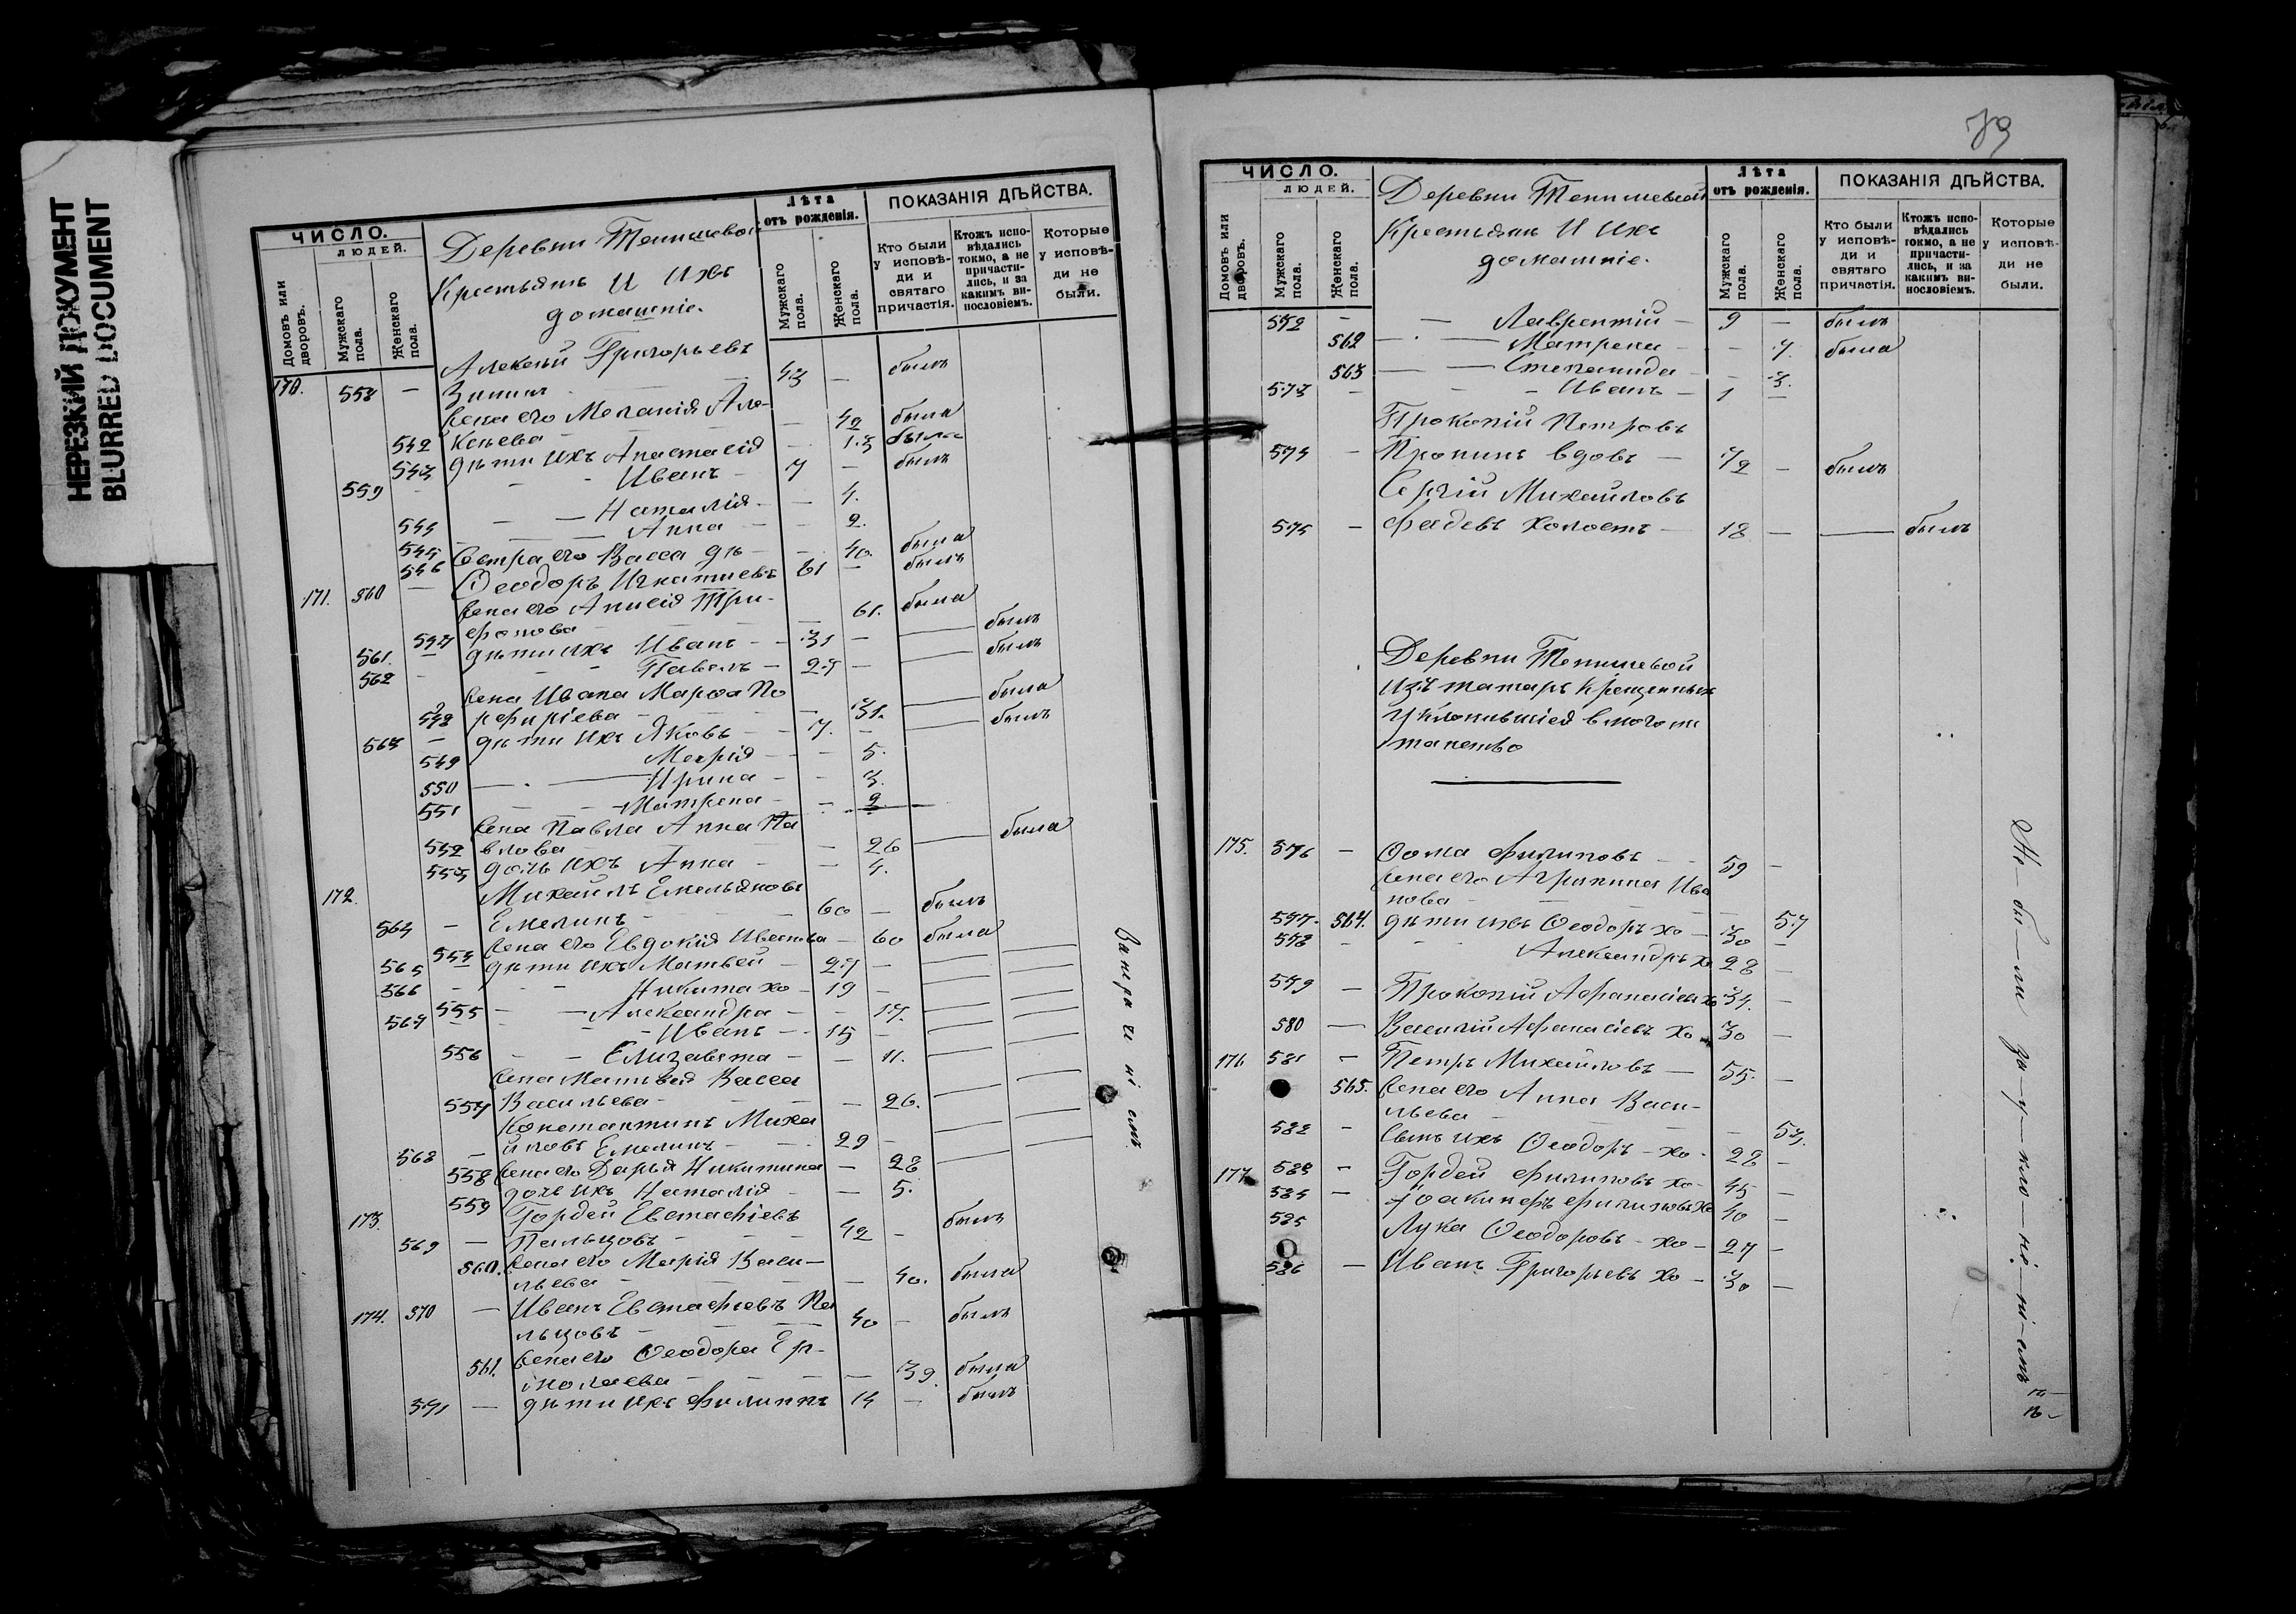 НЕРЕЗКИЙ ДОКУМЕНТ
BLURRED DOCUMENT
ЧИСЛО.
ЛЮДЕЙ.
Домовъ или дворовъ.
Мужскаго пола.
Женскаго пола.
Деревни Тенишевой
Крестьянъ И Ихъ
домашніе.
Лѣта
отъ рожденія.
Мужскаго пола.
Женскаго пола.
ПОКАЗАНІЯ ДѢЙСТВА.
Кто были у исповѣди и святаго причастія.
Ктожъ исповѣдались токмо, а не причастились, и за какимъ винословіемъ.
Которые у исповѣди не были.
Алексѣй Григорьевъ
170. 558 — Зининъ 43 — былъ
Жена его Меланія Але-
542 ксѣева — 42 была
543 дѣти ихъ Анастасія — 13 была
559 - Иванъ 7 — былъ
544 — Наталія — 4.
545 — Анна — 2.
546 Сестра его Васса дѣ — 40. была
171. 560 — Ѳеодоръ Игнатіевъ 61 — былъ
Жена его Анисія Три-
547 фонова — 61. была
561. — дѣти ихъ Иванъ 31 — — былъ
562 - Павелъ 27 — — былъ
Жена Ивана Марѳа По
548 рфиріева — 31. — была
563 — дѣти ихъ Яковъ 7. — — былъ
549 Марія — 5.
550 — Ирина — 3.
551 — Матрена — 2.
Жена Павла Анна Па
552 влова — 26 — была
553 дочь ихъ Анна — 4.
172. Михаилъ Емельяновъ
564 — Емелинъ 60 — былъ
554 Жена его Евдокія Иванова — 60 была
565 — дѣти ихъ Матвей 27 —
566 - Никита хо 19 —
555 — Александра — 17.
567 - Иванъ 15 —
556 — Елизавета — 11.
Жена Матвея Васса
557 Васильева — 26.
Константинъ Миха
568 — йловъ Емелинъ 29 —
558 Жена его Дарья Никитина — 28
559 дочь ихъ Наталія — 5.
173. Гордей Евстафіевъ
569 — Пальцовъ 42 — былъ
560. Жена его Марія Васи-
льева — 40. была
174. 570 — Иванъ Евстафіевъ Па
льцовъ 40 — былъ
561. Жена его Ѳеодора Ер-
молаева — 39. была
571 — дѣти ихъ Филиппъ 14 — былъ
79
ЧИСЛО.
ЛЮДЕЙ.
Домовъ или дворовъ.
Мужскаго пола.
Женскаго пола.
Деревни Тенишевой
Крестьянъ И Ихъ
домашніе.
Лѣта
отъ рожденія.
Мужскаго пола.
Женскаго пола.
ПОКАЗАНІЯ ДѢЙСТВА.
Кто были у исповѣди и святаго причастія.
Ктожъ исповѣдались токмо, а не причастились, и за какимъ винословіемъ.
Которые у исповѣди не были.
572 — — Лаврентій — 9 — былъ
562 — Матрена — 7. была
563 — Степанида — 3.
573 — - Иванъ — 1 —
Прокопій Петровъ
574 — Пронинъ вдовъ — 72 — былъ
Сергій Михайловъ
575 — Фадевъ холостъ — 18 — — былъ
Деревни Тенишевой
Изъ татаръ крещенныхъ
Уклонившіеся в могоме
танство
175. 576 — Ѳома Филиповъ — 59 —
Жена его Агрипина Ива
нова
577. 564. дѣти ихъ Ѳеодоръ хо — 30 57
578 — Александръ хо 28 —
579 — Прокопій Афанасіевъ хо 34. —
580 — Василій Афанасіевъ хо 30 —
176 581 — Петръ Михайловъ — 55. —
565. Жена его Анна Васи-
льева — 53.
582 — Сынъ ихъ Ѳеодоръ хо 28 —
177. 583 — Гордей Филиповъ хо 45 —
584 — Іоакинфъ Филиповъ хо 40 —
585 Лука Ѳеодоровъ хо 27 —
586 — Иванъ Григорьевъ хо 30 —